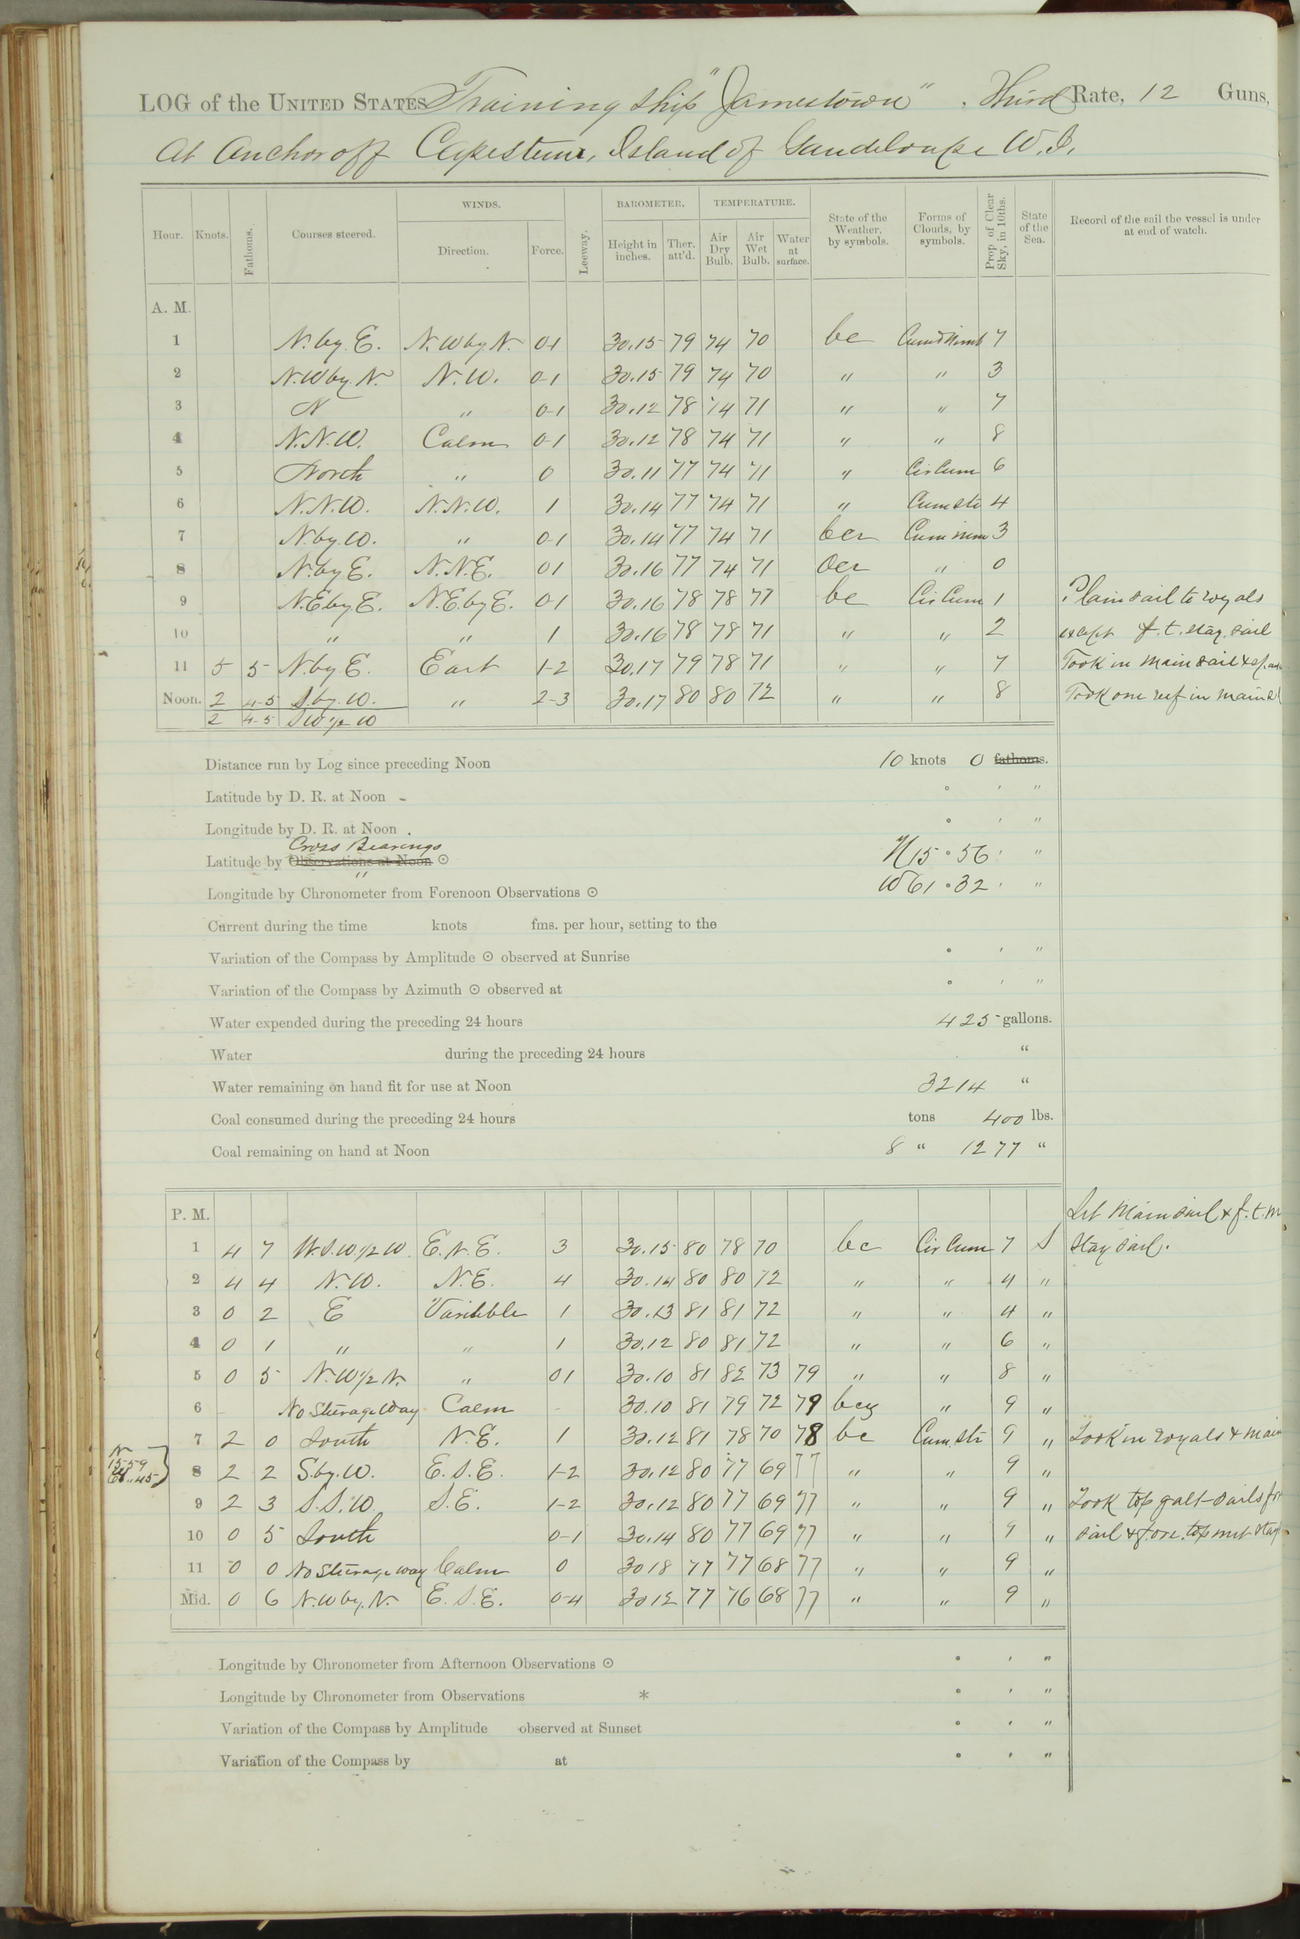 LOG of the UNITED STATES Training Ship "Jamestown", Third Rate, 12 Guns,
At Anchor off Capesterre, Island of Guadeloupe W.I.
Hour. Knots. Fathoms. Courses steered. WINDS. Direction. Force. Leeway. BAROMETER. Height in inches. Ther. att'd. TEMPERATURE. Air Dry Bulb. Air Wet Bulb. Water at surface. State of the Weather, by symbols. Forms of Clouds, by symbols. Prop. of Clear Sky, in 10ths. State of the Sea. Record of the sail the vessel is under at end of watch.
A. M.
1 N. by E. N.W by N. 0-1 30.15 79 74 70 bc Cum & Nimb 7
2 N.W by N N.W. 0-1 30.15 79 74 70 " " 3
3 N " 0-1 30.12 78 74 71 " " 7
4 N.N.W. Calm 0-1 30.12 78 74 71 " " 8
5 North " 0 30.11 77 74 71 " Cir Cum 6
6 N.N.W. N.N.W. 1 30.14 77 74 71 " Cum str 4
7 N by W. " 0-1 30.14 77 74 71 bcr Cum nim 3
8 N. by E. N.N.E. 0-1 30.16 77 74 71 Ocr " 0
9 N.E by E. N.E. by E. 0-1 30.16 78 78 71 bc Cir Cum 1 Plain sail to royals
10 " " 1 30.16 78 78 71 " " 2 except f. t. stay. sail
11 5 5 N. by E. East 1-2 30.17 79 78 71 " " 7 Took in main sail &
Noon. 2 4-5 S. by. W. " 2-3 30.17 80 80 72 " " 8 Took one reef in main
2 4-5 SW ½ W
Distance run by Log since preceding Noon 10 knots 0 fathoms.
Latitude by D. R. at Noon - ° ′ ″
Longitude by D. R. at Noon . ° ′ ″
Cross Bearings
Latitude by Observations at Noon ⊙ N 15 ° 56 ′ ″
"
Longitude by Chronometer from Forenoon Observations ⊙ W 61 ° 32 ′ ″
Current during the time knots fms. per hour, setting to the
Variation of the Compass by Amplitude ⊙ observed at Sunrise ° ′ ″
Variation of the Compass by Azimuth ⊙ observed at ° ′ ″
Water expended during the preceding 24 hours 425 gallons.
Water during the preceding 24 hours "
Water remaining on hand fit for use at Noon 3214 "
Coal consumed during the preceding 24 hours tons 400 lbs.
Coal remaining on hand at Noon 8 " 1277 "
P. M. Set Main sail & f. t. m
1 4 7 W.S.W ½ W. E.N.E. 3 30.15 80 78 70 bc Cir Cum 7 S stay sail.
2 4 4 N.W. N.E. 4 30.14 80 80 72 " " 4 "
3 0 2 E Variable 1 30.13 81 81 72 " " 4 "
4 0 1 " " 1 30.12 80 81 72 " " 6 "
5 0 5 N.W ½ N. " 0 1 30.10 81 82 73 79 " " 8 "
6 - No Steerage Way Calm - 30.10 81 79 72 79 " 9 "
7 2 0 South N.E. 1 30.12 81 78 70 78 bc Cum. str 9 " Took in royals & main
N 15-59
61..45
8 2 2 S by. W. E.S.E. 1-2 30.12 80 77 69 77 " " 9 "
9 2 3 S.S.W. S.E. 1-2 30.12 80 77 69 77 " " 9 " Took top galt-sails for
10 0 5 South 0-1 30.14 80 77 69 77 " " 9 " sail & fore. top mst stay
11 0 0 No Steerage way Calm 0 30 18 77 77 68 77 " " 9 "
Mid. 0 6 N.W by. N. E.S.E. 0-4 30 12 77 76 68 77 " " 9 "
Longitude by Chronometer from Afternoon Observations ⊙ ° ′ ″
Longitude by Chronometer from Observations * ° ′ ″
Variation of the Compass by Amplitude observed at Sunset ° ′ ″
Variation of the Compass by at ° ′ ″